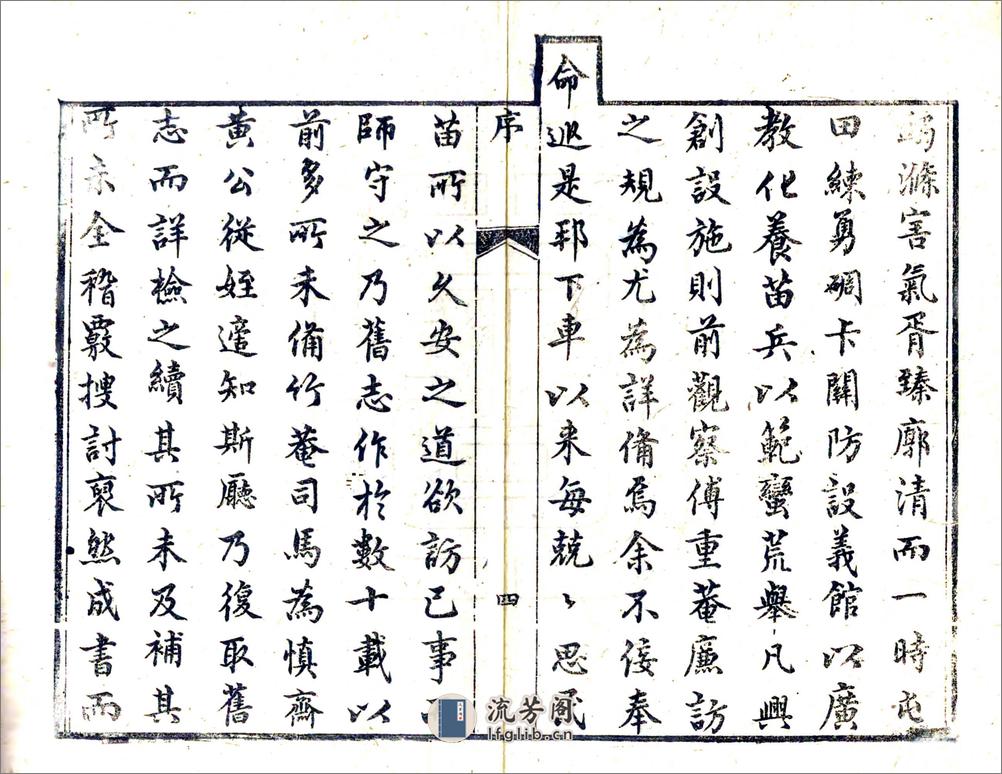 滌害氣胥臻廓清而一時屯
田練勇碉卡關防設義館以廣
教化養苗兵以範蠻荒舉凡興
創設施則前觀察傅重菴廉訪
之規為尤為詳備焉余不佞奉
命巡是邦下車以来每兢〻思民
序
四
苗所以久安之道欲訪已事而
師守之乃舊志作於數十載以
前多所未備竹菴司馬為慎齋
黄公從姪適知斯廳乃復取舊
志而詳檢之續其所未及補其
所未全稽覈搜討裒然成書而
流芳阁
lfglib.cn